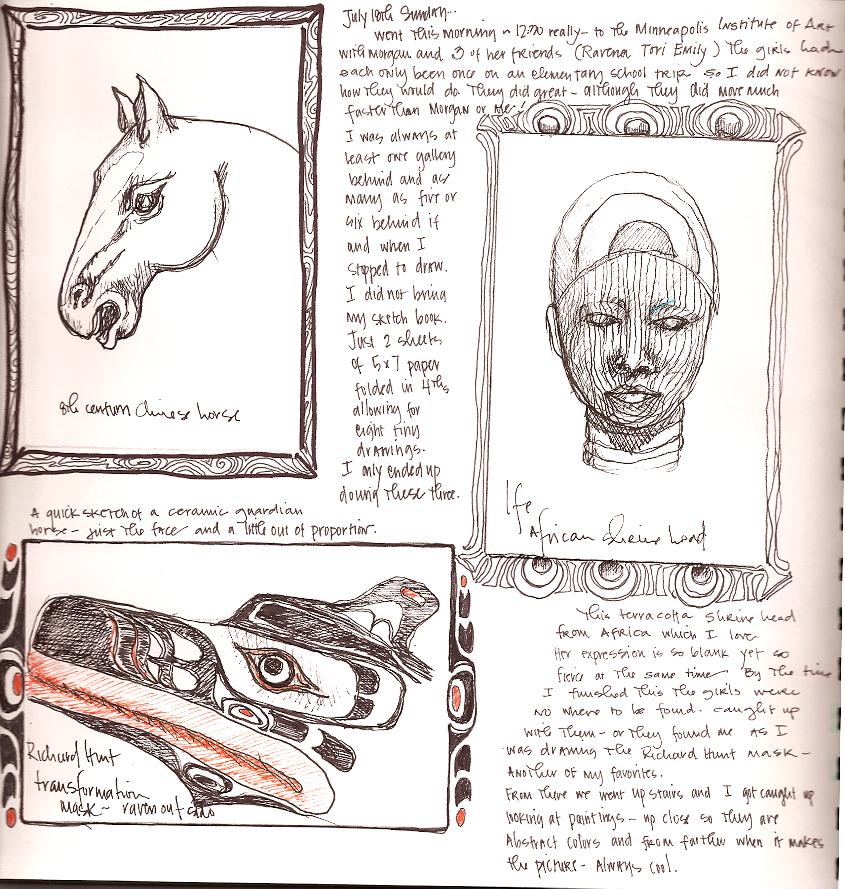 July 18th Sunday...
went this morning ~ 12:30 really - to the Minneapolis Institute of Art
with Morgan and 3 of her friends (Ravena Tori Emily) The girls had
each only been once on an elementary school trip so I did not know
how they would do. They did great - although they did move much
faster than Morgan or me!
I was always at
least one gallery
behind and as
many as five or
six behind if
and when I
stopped to draw.
I did not bring
my sketch book.
Just 2 sheets
of 5x7 paper
folded in 4ths
allowing for
eight tiny
drawings.
I only ended up
doing these three.
8th century Chinese horse
A quick sketch of a ceramic guardian
horse - just the face and a little out of proportion.
Ife
African shrine head
This terracotta shrine head
from Africa which I love
Her expression is so blank yet so
fierce at the same time. By the time
I finished this the girls were
no where to be found. Caught up
with them - or they found me as I
was drawing the Richard Hunt mask -
Another of my favorites.
From there we went upstairs and I got caught up
looking at paintings - up close so they are
Abstract colors and from farther when it makes
the picture - Always cool.
Richard Hunt
transformation
mask - raven outside